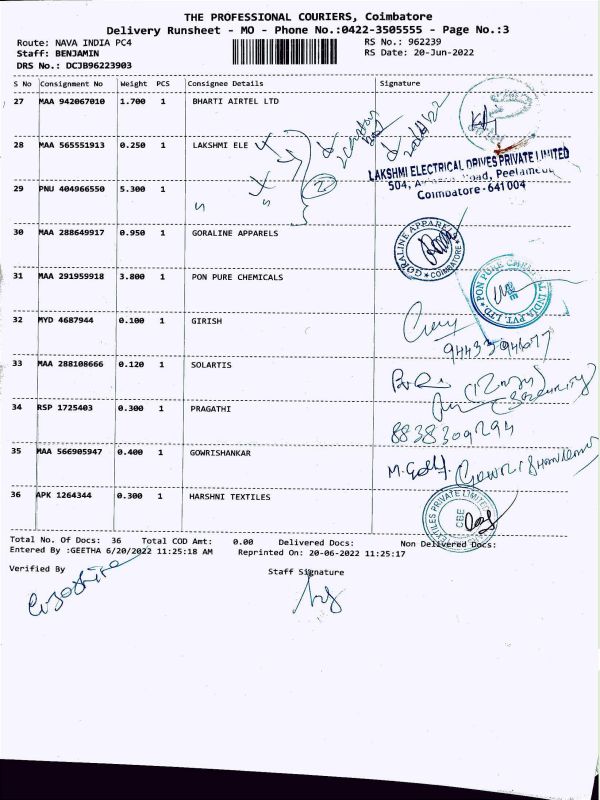 THE PROFESSIONAL COURIERS, Coimbatore
Delivery Runsheet - MO - Phone No.:0422-3505555 - Page No.:3
Route: NAVA INDIA PC4 RS No.: 962239
Staff: BENJAMIN RS Date: 20-Jun-2022
DRS No.: DCJB96223903
S No Consignment No Weight PCS Consignee Details Signature
27 MAA 942067010 1.700 1 BHARTI AIRTEL LTD
28 MAA 565551913 0.250 1 LAKSHMI ELE
LAKSHMI ELECTRICAL DRIVES PRIVATE LIMITED
504, Road, Peelamedu
Coimbatore - 641 004
29 PNU 404966550 5.300 1
30 MAA 288649917 0.950 1 GORALINE APPARELS
GORALINE APPARELS COIMBATORE
31 MAA 291959918 3.800 1 PON PURE CHEMICALS
PON PURE INDIA PVT. LTD
32 MYD 4687944 0.100 1 GIRISH
33 MAA 288108666 0.120 1 SOLARTIS
34 RSP 1725403 0.300 1 PRAGATHI
8838309294
35 MAA 566905947 0.400 1 GOWRISHANKAR
36 APK 1264344 0.300 1 HARSHNI TEXTILES
PRIVATE LIMITED CBE
Total No. Of Docs: 36 Total COD Amt: 0.00 Delivered Docs: Non Delivered Docs:
Entered By :GEETHA 6/20/2022 11:25:18 AM Reprinted On: 20-06-2022 11:25:17
Verified By Staff Signature